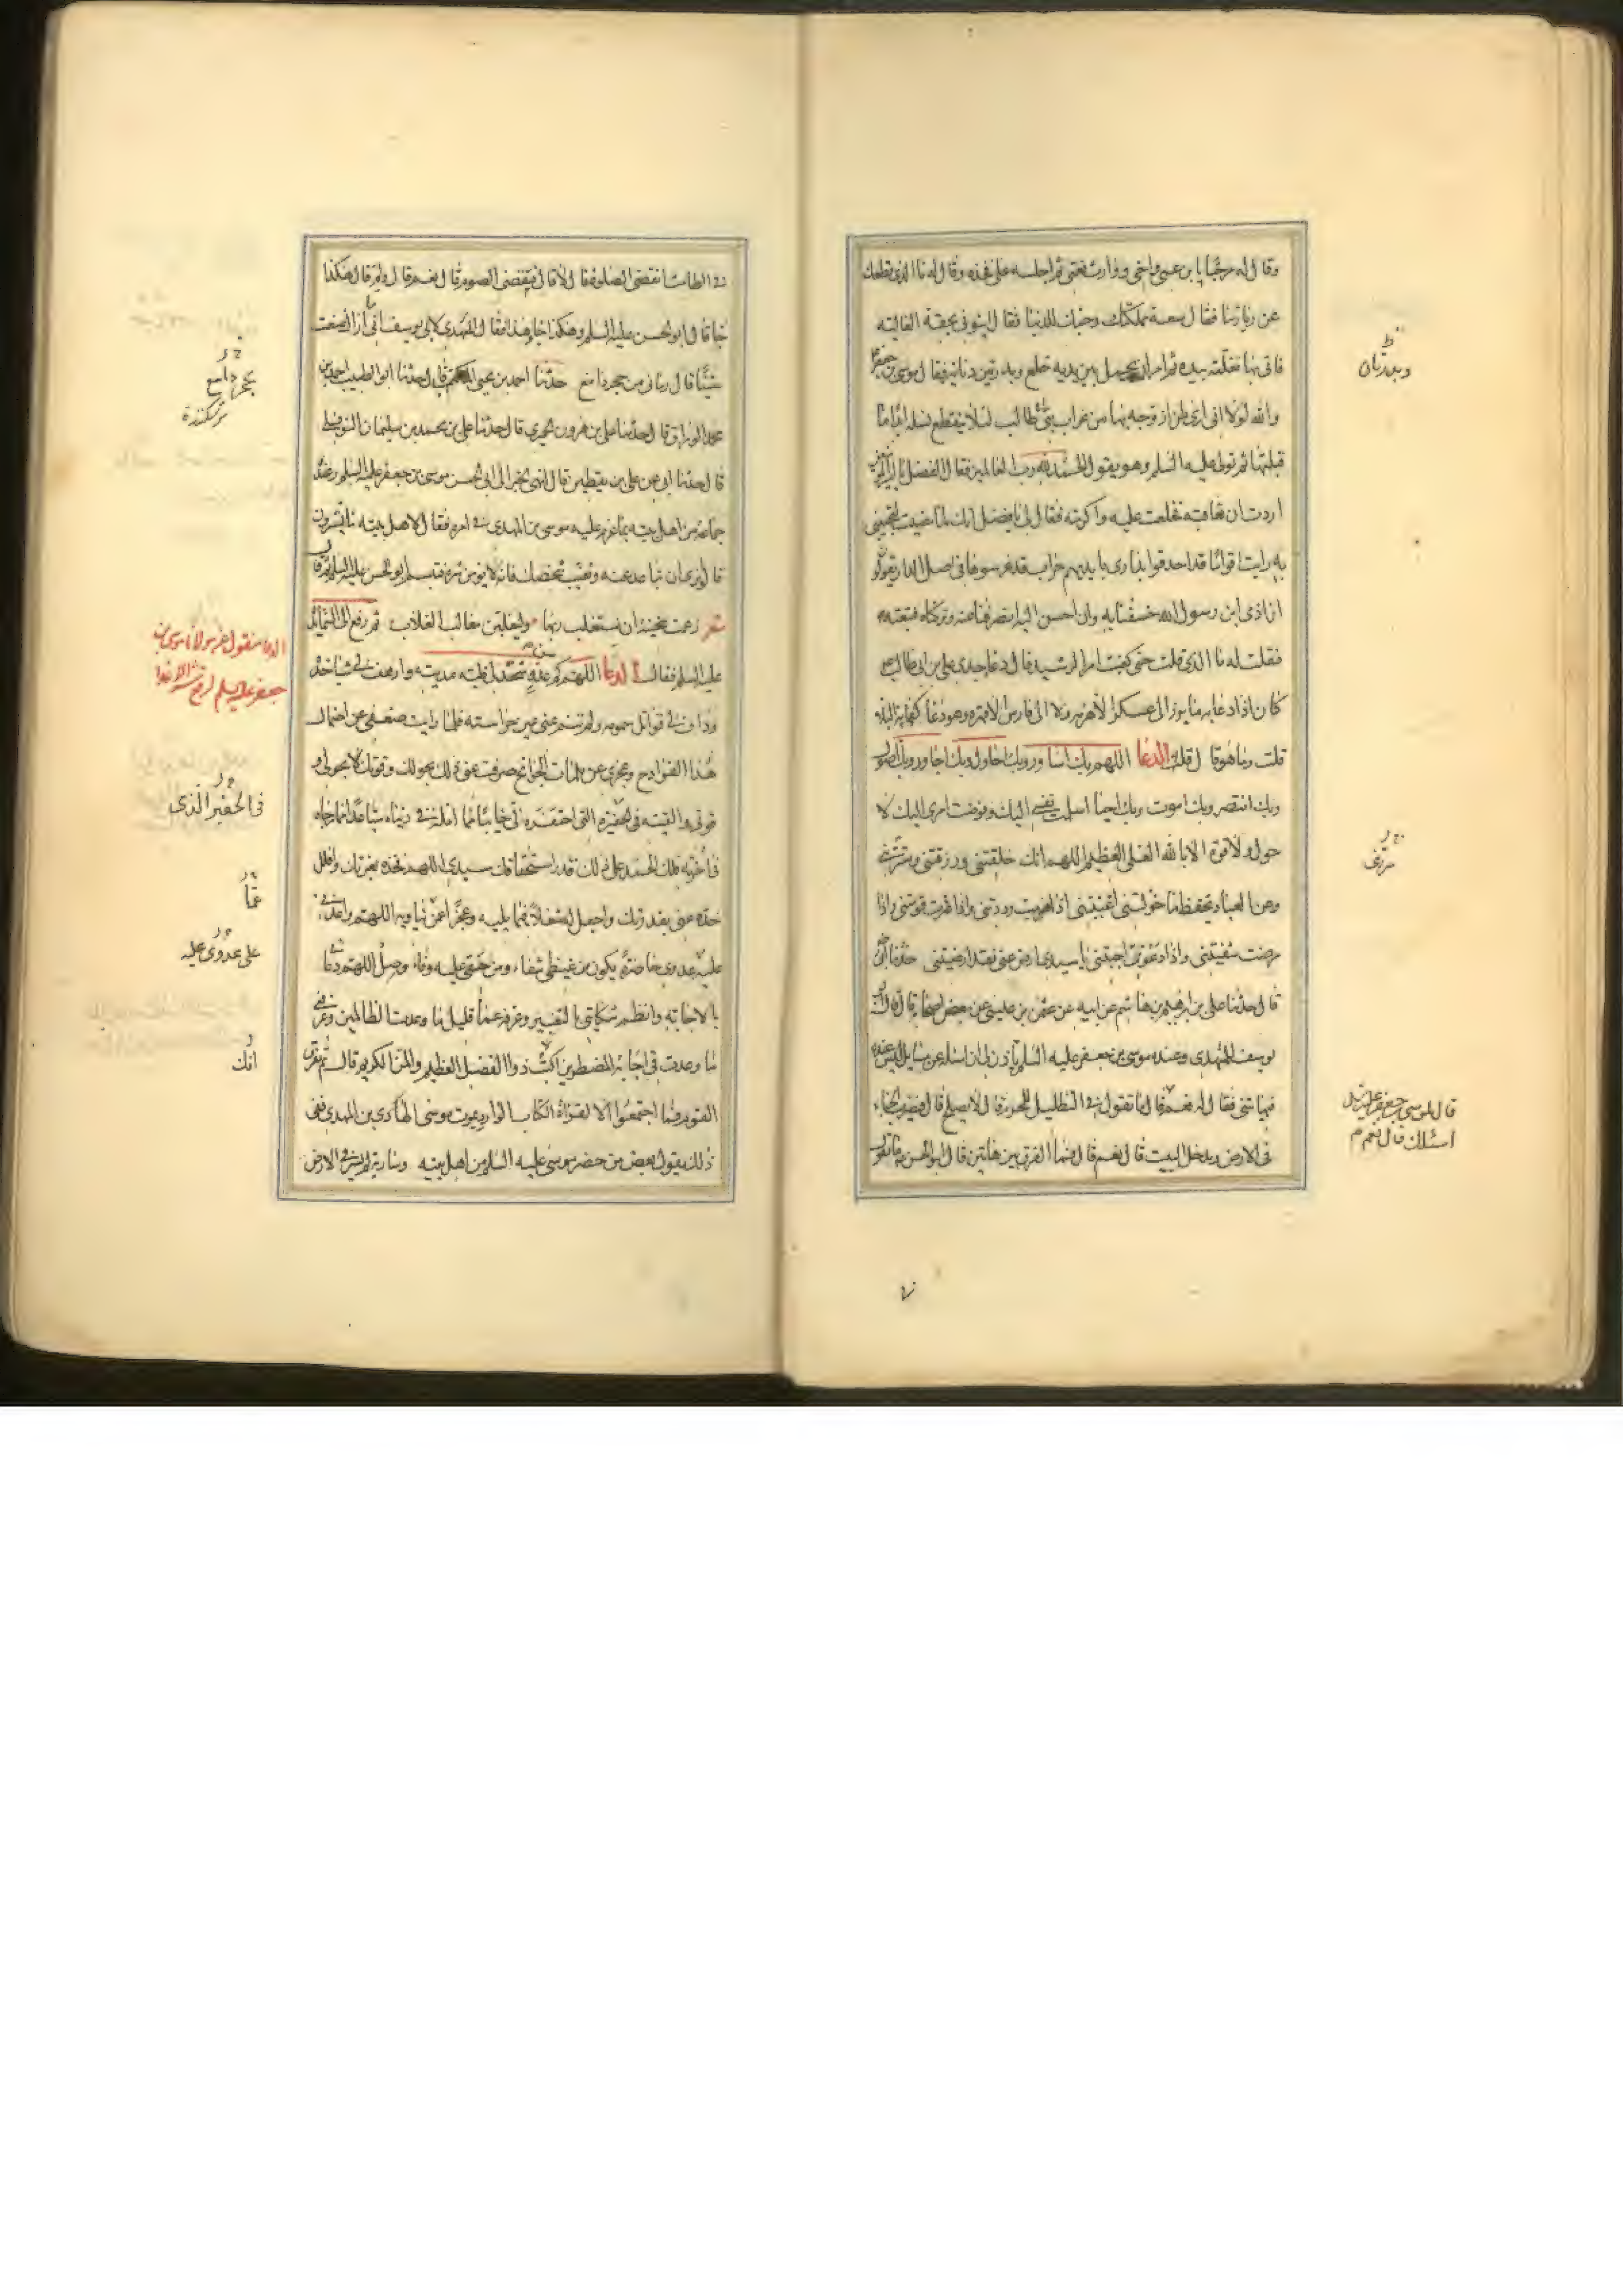 وقال له مرحبا يا بن عمي واخي ووارث نعمتي ثم اجلسه على فخذه وقال له ما الذي قطعك
عن زيارتنا فقال سعة مملكتك وحبك للدنيا فقال ايتوني بحقة الغالية
فاتي بها فغلفه بيده ثم امر ان يحمل بين يديه خلع وبدرتين دنانير فقال موسى بن جعفر
والله لولا اني ارى من ازوجه بها من عزاب بني طالب لئلا ينقطع نسله ابدا ما
قبلتها ثم تولى عليه السلم وهو يقول الحمد لله رب العالمين فقال الفضل يا امير المؤمنين
اردت ان تعاقبه فخلعت عليه واكرمته فقال لي يا فضل انك لما مضيت لتجيئني
به رايت اقواما قد احدقوا بداري بايديهم حراب قد غرسوها في اصل الدار يقولون
ان اذى ابن رسول الله خسفنا به وان احسن اليه انصرفنا عنه وتركناه فتبعته
فقلت له ما الذي قلت حتى كفيت امر الرشيد فقال دعا جدي علي بن ابي طالب
كان اذا دعا به ما برز الى عسكر الا هزمه ولا الى فارس الا قهره وهو دعا كفاية البلاء
قلت وما هو قال قلت الدعا اللهم بك اساور وبك احاول وبك اجاور وبك اصول
وبك انتصر وبك اموت وبك احيا اسلمت نفسي اليك وفوضت امري اليك لا
حول ولا قوة الا بالله العلي العظيم اللهم انك خلقتني ورزقتني وسترتني
وعن العباد بحفظ ما خولتني اغنيتني اذا هويت رددتني واذا عثرت قومتني واذا
مرضت شفيتني واذا دعوتك اجبتني يا سيدي ارض عني فقد ارضيتني حدثنا ابي
قال حدثنا علي بن ابرهيم بن هاشم عن ابيه عن عثمن بن عيسى عن بعض اصحابه قال قال ابو
يوسف للمهدي وعنده موسى بن جعفر عليه السلم تاذن لي ان اسئله عن مسايل ليس عنده
فيها شئ فقال له نعم قال ما تقول في التظليل للمحرم قال لا يصلح قال فيضرب الخباء
في الارض ويدخل البيت قال نعم قال فما الفرق بين هاتين قال ابو الحسن ما تقول
وبدرتان
قال لموسى بن جعفر عليه السلم
اسئلك قال نعم م
في الطامث اتقضي الصلوة قال لا قال فتقضي الصوم قال نعم قال ولم قال هكذا
جاء قال ابو الحسن عليه السلم وهكذا جاء هذا فقال المهدي لابي يوسف ما اراك صنعت
شيئا قال رماني بحجر دامغ حدثنا احمد بن يحيى المكتب قال حدثنا ابو الطيب احمد بن
محمد الوراق قال حدثنا علي بن هرون الحميري قال حدثنا علي بن محمد بن سليمان النوفلي
قال حدثنا ابي عن علي بن يقطين قال انهي الخبر الى ابي الحسن موسى بن جعفر عليه السلم وعنده
جماعة من اهل بيته بما عزم عليه موسى بن المهدي في امره فقال لاهل بيته ما تشيرون
قالوا نرى ان تباعد عنه وتغيب شخصك فانه لا يومن شره فتبسم ابو الحسن عليه السلم ثم قال
شعر زعمت سخينة ان ستغلب ربها وليغلبن مغالب الغلاب ثم رفع الى السماء يده
عليه السلم فقال الدعا اللهم كم من عدو شحذ لي ظبة مديته وارهف لي شبا حده
وداف لي قواتل سمومه ولم تنم عني عين حراسته فلما رايت ضعفي عن احتمال
هذا الفوادح وعجزي عن ملمات الجوائح صرفت عني ذلك بحولك وقوتك لا بحولي ولا
قوتي والقيته في الحفيرة التي احتفره لي خائبا مما امله في دنياه متباعدا مما رجاه
في اخرته فلك الحمد على ذلك قدر استحقاقك سيدي اللهم فخذه بعزتك وافلل
حده عني بقدرتك واجعل له شغلا فيما يليه وعجزا عمن يناويه اللهم واعدني
عليه عدوى حاضرة يكون من غيظي شفاء ومن حنقي عليه وفاء وصل اللهم دعائي
بالاجابة وانظم شكايتي بالتغيير وعرفه عما قليل ما وعدت الظالمين وعرفني
ما وعدت في اجابة المضطرين انك ذوا الفضل العظيم والمن الكريم قال ثم تفرق
القوم فما اجتمعوا الا لقراة الكتاب الوارد بموت موسى الهادي بن المهدي ففي
ذلك يقول بعض من حضر موسى عليه السلم من اهل بيته وسارية لم تسر في الارض
بحجر دامغ
الدعا منقول عن مولانا موسى بن
جعفر عليه السلم لرفع شر الاعدا
في الحفير الذي
عما
على عدوى عليه
انك